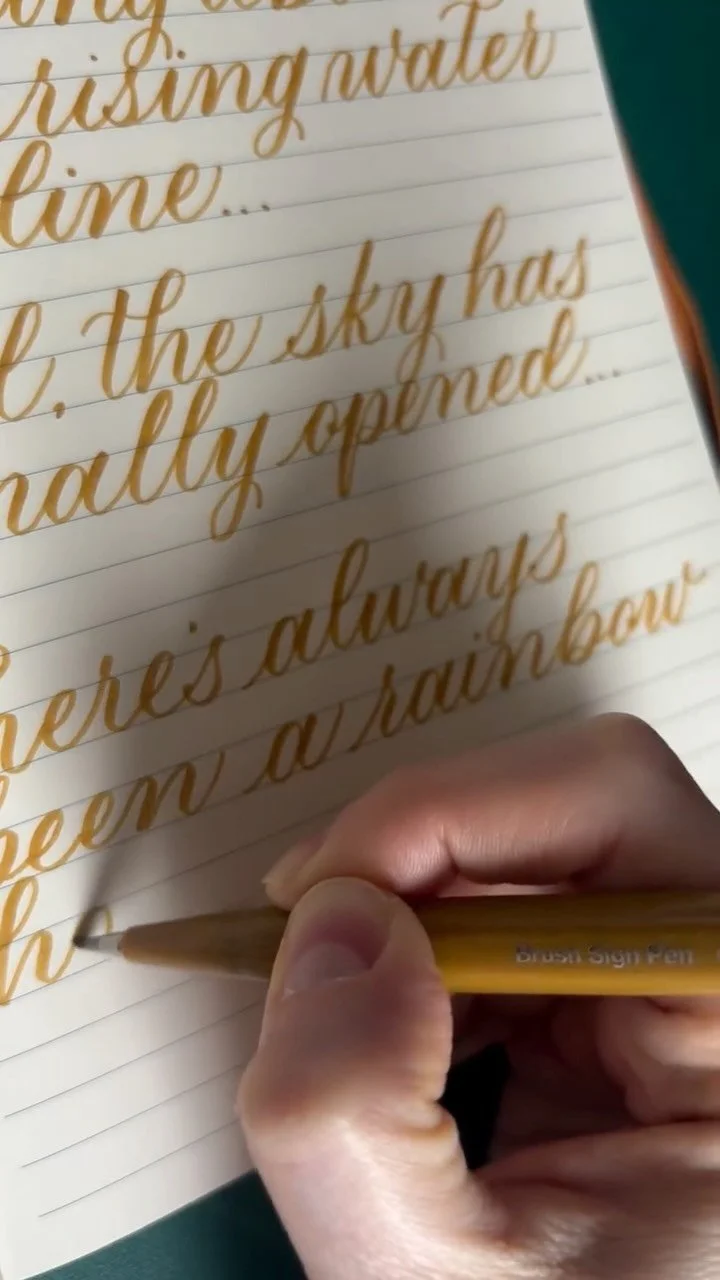 rising water
line...
the sky has
opened...
here's always
been a rainbow
h
Brush Sign Pen